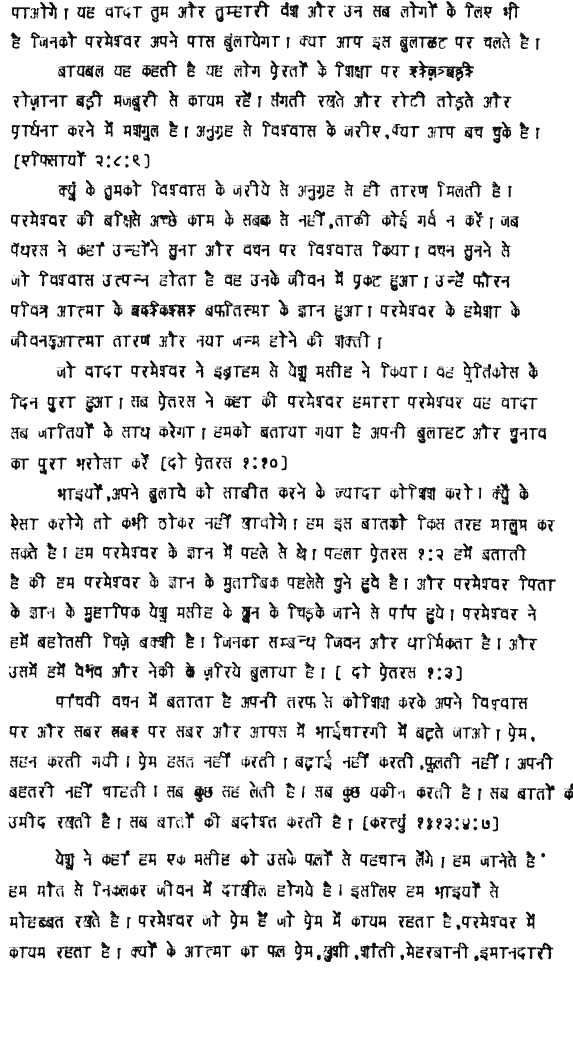 पाओगे। यह वादा तुम और तुम्हारी वंश और उन सब लोगों के लिए भी
है जिनको परमेश्वर अपने पास बुंलायेगा। क्या आप इस बुलाहट पर चलते है।
बायबल यह कहती है यह लोग प्रेरतों के शिक्षा पर
रोज़ाना बड़ी मजबूरी से कायम रहें। संगती रखते और रोटी तोड़ते और
प्रार्थना करने में मशगूल है। अनुग्रह से विश्वास के जरीए,क्या आप बच चुके है।
[एफिसायों २:८:९]
क्युं के तुमको विश्वास के जरीये से अनुग्रह से ही तारण मिलती है।
परमेश्वर की बक्षिसे अच्छे काम के सबक से नहीं,ताकी कोई गर्व न करें। जब
पॅथरस ने कहां उन्होंने सुना और वचन पर विश्वास किया। वचन सुनने से
जो विश्वास उत्पन्न होता है वह उनके जीवन में प्रकट हुआ। उन्हें फौरन
पवित्र आत्मा के बफतिस्मा के ज्ञान हुआ। परमेश्वर के हमेशा के
जीवन आत्मा तारण और नया जन्म होने की शक्ती।
जो वादा परमेश्वर ने इब्राहम से येशू मसीह ने किया। वह पेंतिकोस के
दिन पुरा हुआ। सब पेतरस ने कहा की परमेश्वर हमारा परमेश्वर यह वादा
सब जातियों के साथ करेगा। हमको बताया गया है अपनी बुलाहट और चुनाव
का पुरा भरोसा करें [दो प्रेतरस १:१०]
भाइयों,अपने बुलावे को साबीत करने के ज्यादा कोशिश करो। क्युँ के
ऐसा करोगे तो कभी ठोकर नहीं खावोगे। हम इस बातको किस तरह मालुम कर
सकते है। हम परमेश्वर के ज्ञान में पहले से थे। पहला प्रेतरस १:२ हमें बताती
है की हम परमेश्वर के ज्ञान के मुताबिक पहलेसे चुने हुवे है। और परमेश्वर पिता
के ज्ञान के मुहापिक येशु मसीह के खुन के चिड़के जाने से पाप हुये। परमेश्वर ने
हमें बहोतसी चिज़े बक्शी है। जिनका सम्बन्ध जिवन और धार्मिकता है। और
उसमें हमें वैभव और नेकी के ज़रिये बुलाया है। [ दो प्रेतरस १:३]
पांचवी वचन में बताता है अपनी तरफ से कोशिश करके अपने विश्वास
पर और सबर पर सबर और आपस में भाईचारगी में बढ़ते जाओ। प्रेम,
सहन करती गयी। प्रेम हसत नहीं करती। बढ़ाई नहीं करती,फूलती नहीं। अपनी
बहतरी नहीं चाहती। सब कुछ सह लेती है। सब कुछ यकीन करती है। सब बातों की
उमीद रखती है। सब बातों की बदोश्त करती है। [करत्युं १३:४:७]
येशू ने कहां हम एक मसीह को उसके फलों से पहचान लेंगे। हम जानेते है
हम मौत से निकलकर जीवन में दाखील होगये है। इसलिए हम भाइयों से
मोहब्बत रखते है। परमेश्वर जो प्रेम हैं जो प्रेम में कायम रहता है,परमेश्वर में
कायम रहता है। क्यों के आत्मा का फल प्रेम,खुशी,शांती,मेहरबानी,इमानदारी